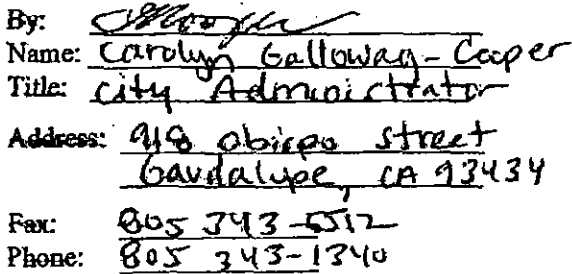 By:
Name: Carolyn Galloway-Cooper
Title: City Administrator
Address: 918 Obispo Street
Gaudalupe, CA 93434
Fax: 805 343-5512
Phone: 805 343-1340